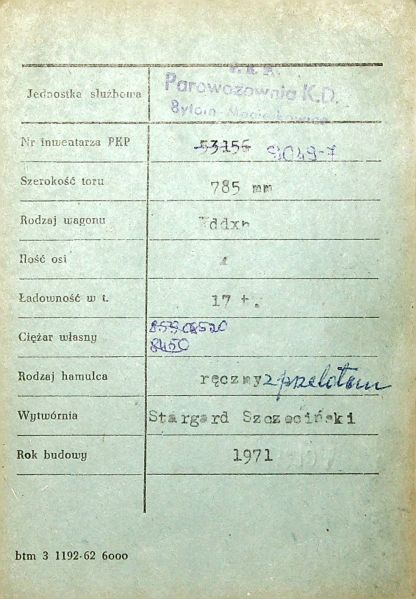 P. K. P.
Parowozownia K.D.
Jednostka służbowa
Bytom
Nr inwentarza PKP 53155 9049-7
Szerokość toru 785 mm
Rodzaj wagonu ddxh
Ilość osi 4
Ładowność w t. 17 t.
Ciężar własny
8450
Rodzaj hamulca ręczny z przelotem
Wytwórnia Stargard Szczeciński
Rok budowy 1971
btm 3 1192-62 6000